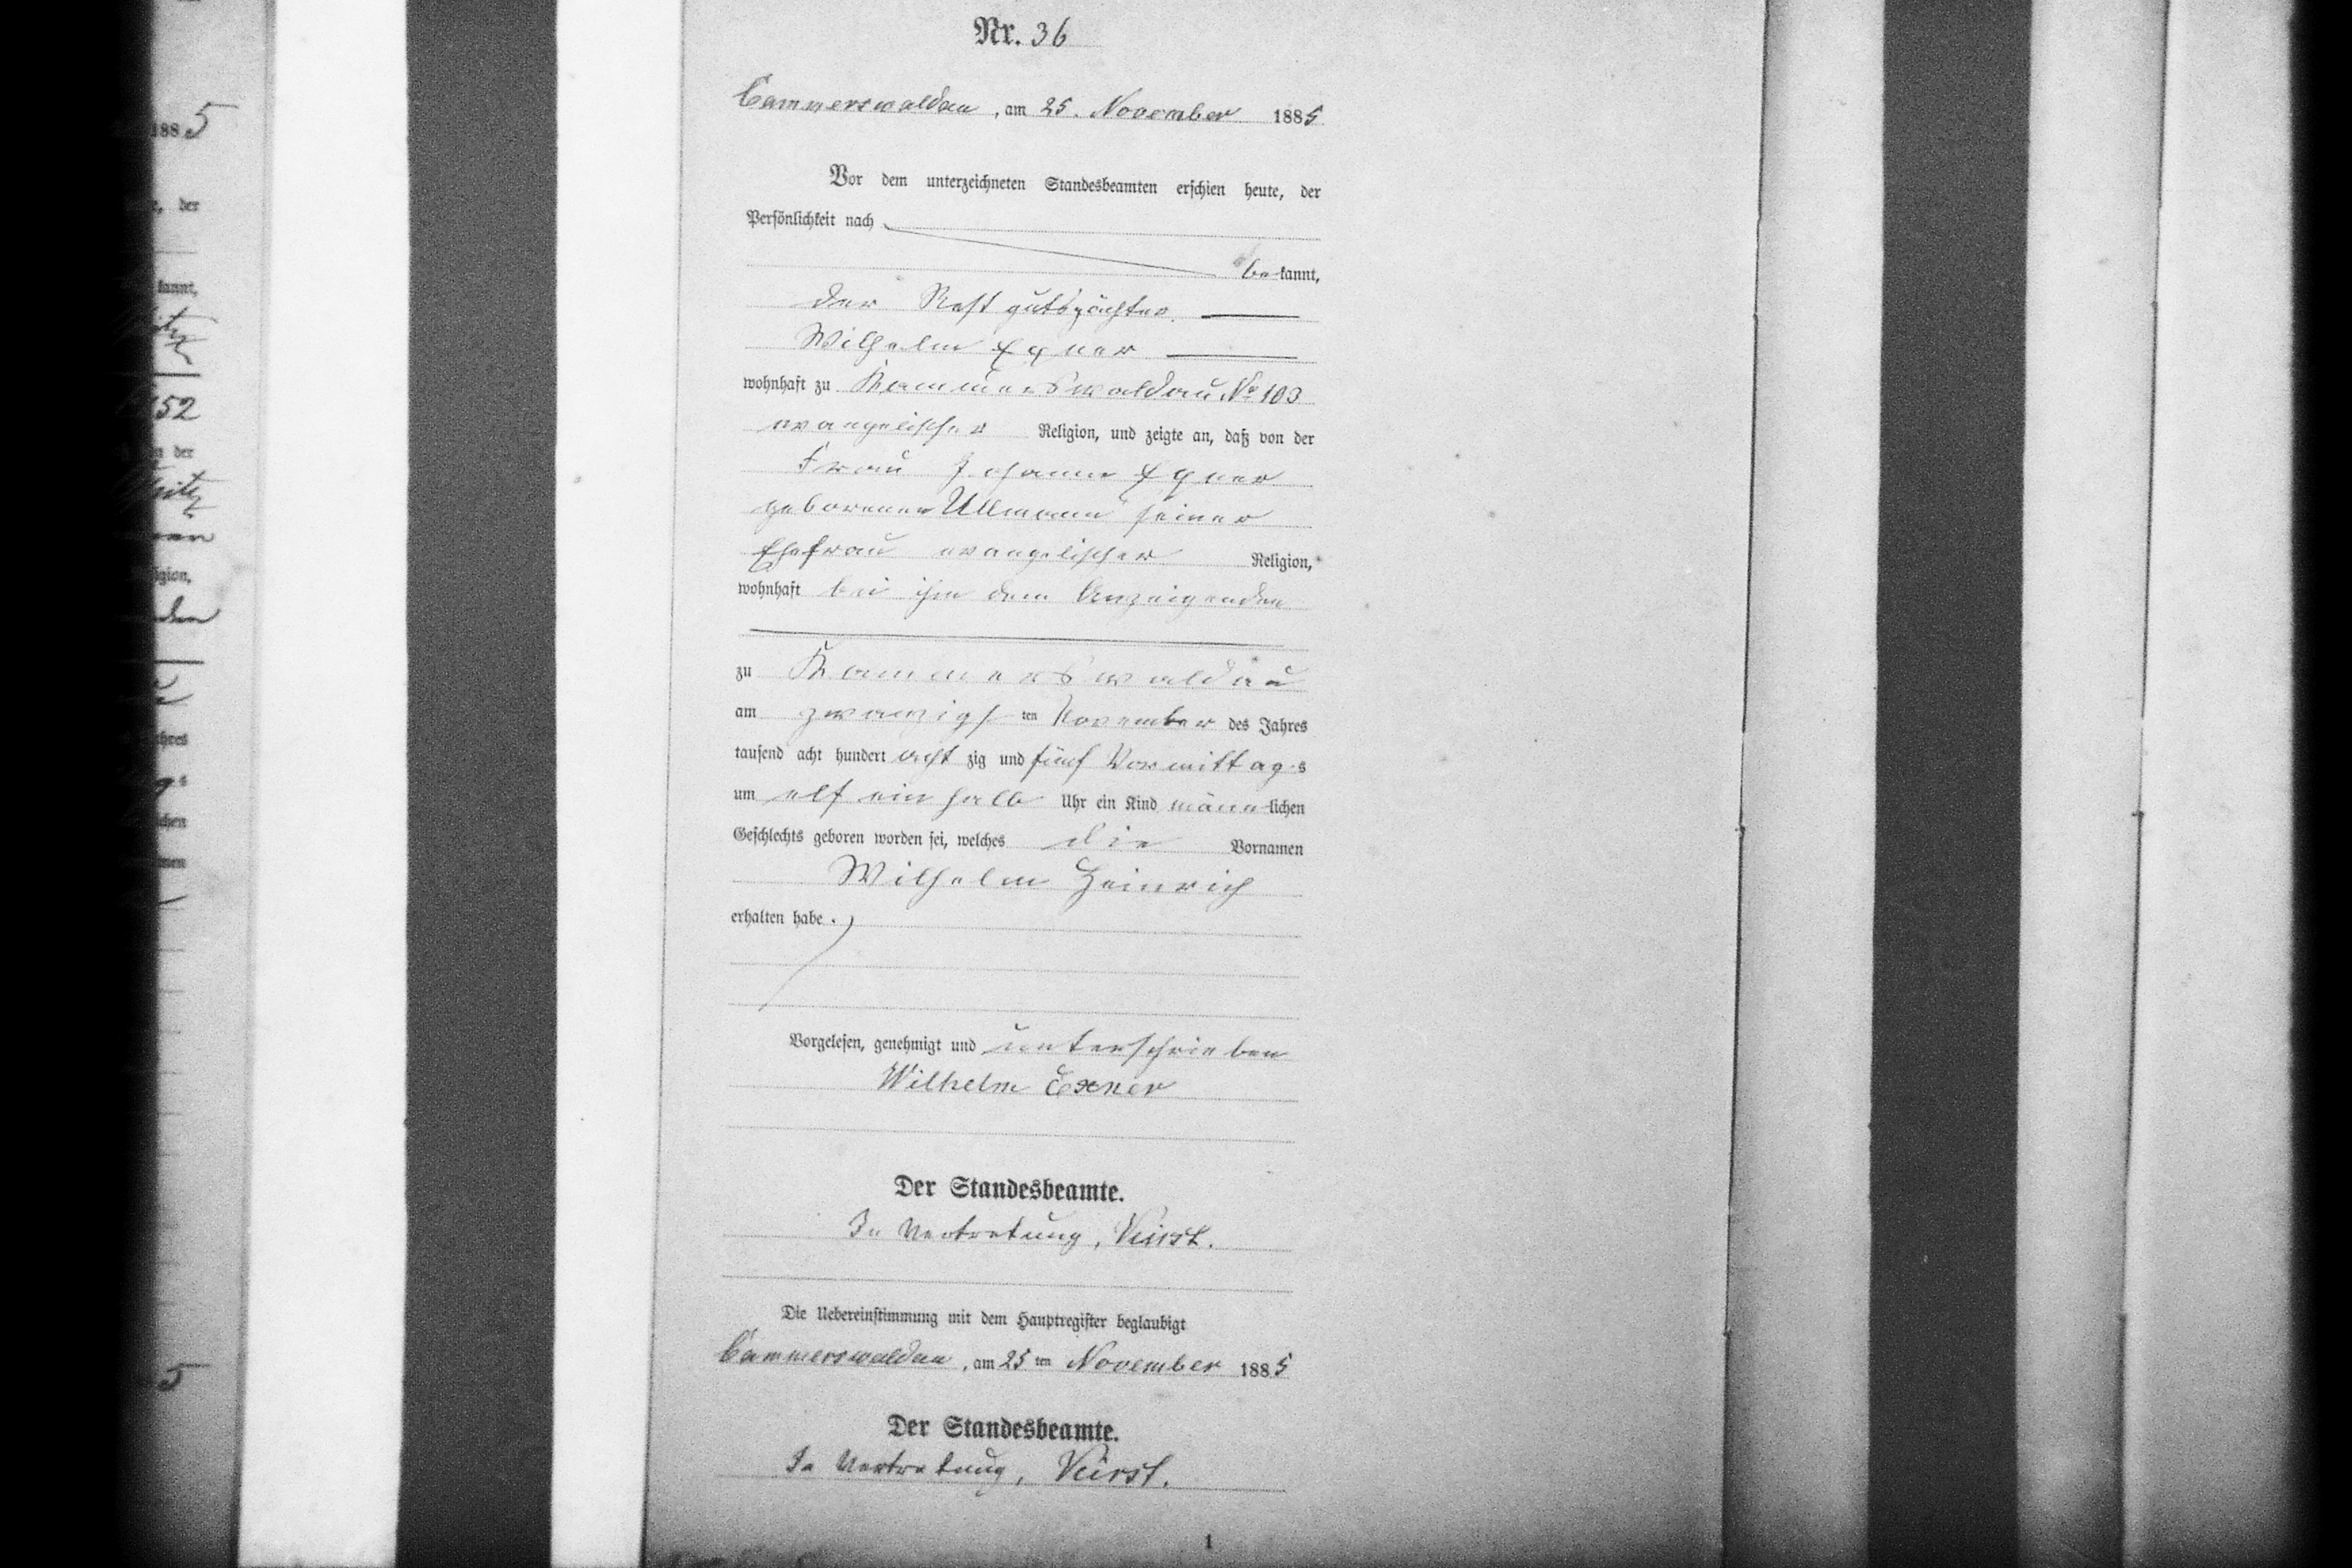 Nr. 36
Cammerswaldau, am 25. November 1885
Vor dem unterzeichneten Standesbeamten erschien heute, der
Persönlichkeit nach
bekannt,
der Restgutspächter
Wilhelm Exner
wohnhaft zu Kammerswaldau No 103
evangelischer Religion, und zeigte an, daß von der
Frau Johanne Exner
geborenen Ullmann seiner
Ehefrau evangelischer Religion,
wohnhaft bei ihm dem Anzeigenden
zu Kammerswaldau
am zwanzigsten November des Jahres
tausend acht hundert acht zig und fünf Vormittags
um elf ein halb Uhr ein Kind männlichen
Geschlechts geboren worden sei, welches die Vornamen
Wilhelm Heinrich
erhalten habe.
Vorgelesen, genehmigt und unterschrieben
Wilhelm Exner
Der Standesbeamte.
In Vertretung,
Die Uebereinstimmung mit dem Hauptregister beglaubigt
Cammerswaldau, am 25ten November 1885
Der Standesbeamte.
In Vertretung,
1